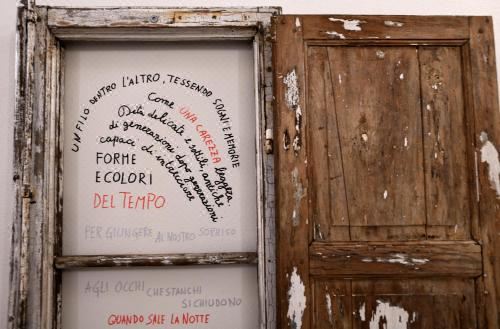 UN FILO DENTRO L'ALTRO, TESSENDO SOGNI E MEMORIE
Come UNA CAREZZA leggera
Dita delicate e sottili, antiche
di generazioni dopo generazioni
capaci di intrecciare
FORME
E COLORI
DEL TEMPO
PER GIUNGERE AL NOSTRO SORRISO
AGLI OCCHI CHE STANCHI
SI CHIUDONO
QUANDO SALE LA NOTTE